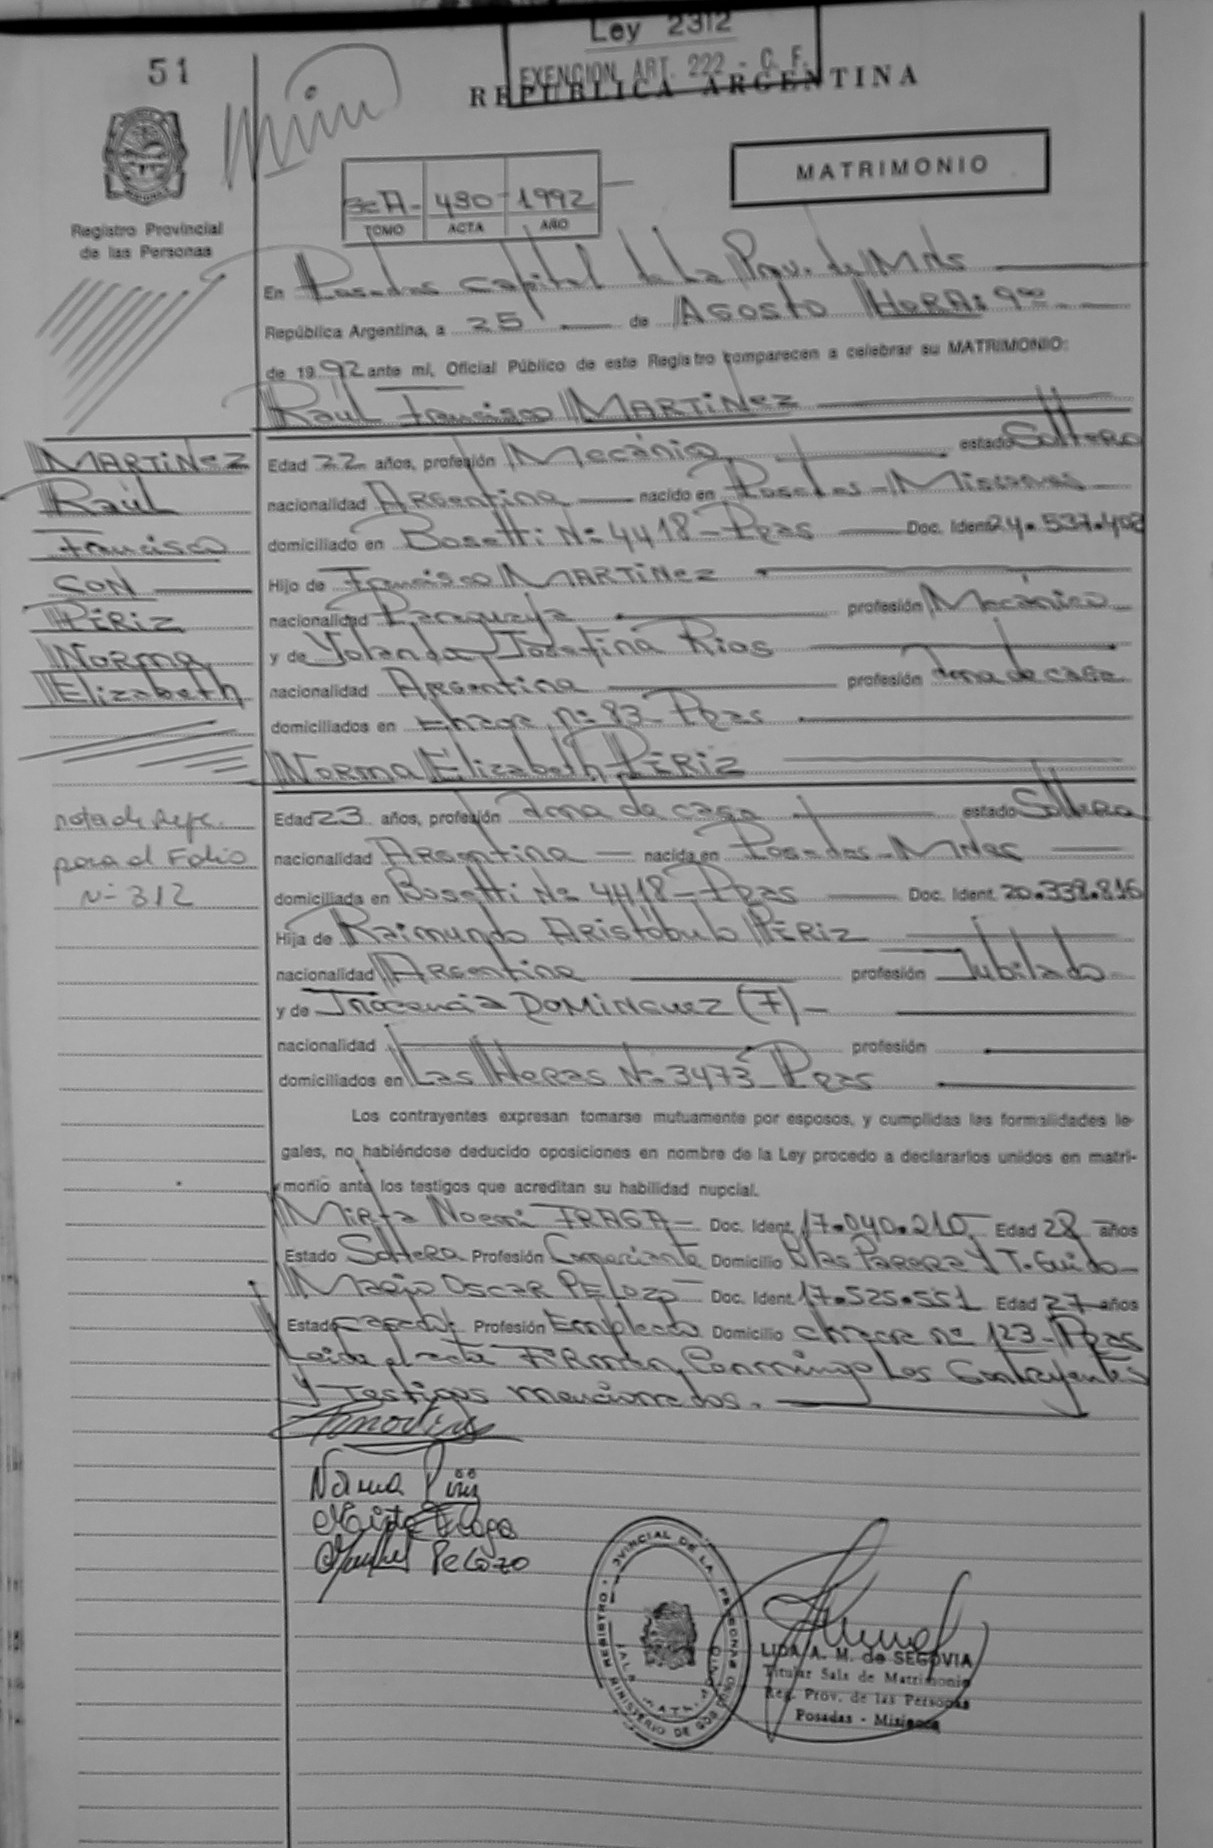 51
Ley 2312
EXENCION ART. 222 - C. F.
REPUBLICA ARGENTINA
MATRIMONIO
480 - 1992
TOMO ACTA AÑO
Registro Provincial
de las Personas
En Posadas Capital de La Prov. de Mnes
República Argentina, a 25 de Agosto HORA: 9ºº
de 1992 ante mí, Oficial Público de este Registro comparecen a celebrar su MATRIMONIO:
Raúl Francisco MARTINEZ
Edad 22 años, profesión Mecánico estado Soltero
nacionalidad Argentina nacido en Posadas - Misiones
domiciliado en Bosetti Nº 4418 - Pdas Doc. Ident. 24.537.408
Hijo de Francisco MARTINEZ
nacionalidad Paraguaya profesión Mecánico
y de Yolanda Josefina Rios
nacionalidad Argentina profesión Ama de casa
domiciliados en Chacra nº 83 - Pdas
Norma Elizabeth PÉRIZ
MARTINEZ
Raúl
Francisco
CON
PÉRIZ
Norma
Elizabeth
Edad 23 años, profesión Ama de casa estado Soltera
nacionalidad Argentina nacida en Posadas - Mnes
domiciliada en Bosetti Nº 4418 - Pdas Doc. Ident. 20.338.816
Hija de Raimundo Aristóbulo PÉRIZ
nacionalidad Argentina profesión Jubilado
y de Inocencia DOMINGUEZ (F) -
nacionalidad profesión
domiciliados en Las Heras Nº 3473 Pdas
nota de Refe.
para el Folio
Nº 312
Los contrayentes expresan tomarse mutuamente por esposos, y cumplidas las formalidades le-
gales, no habiéndose deducido oposiciones en nombre de la Ley procedo a declararlos unidos en matri-
monio ante los testigos que acreditan su habilidad nupcial.
Mirta Noemi FRAGA - Doc. Ident. 17.040.210 Edad 28 años
Estado Soltera Profesión Comerciante Domicilio Blas Parera y T. Guido
Mario Oscar PELozo - Doc. Ident. 17.525.551 Edad 27 años
Estado casado Profesión Empleado Domicilio chacra nº 123 - Pdas
Leida el acta Firman Conmingo Los Contrayentes
y Testigos mencionados.
Norma Périz
Mirta Fraga
Pelozo
REGISTRO PROVINCIAL DE LAS PERSONAS
MINISTERIO DE GOBIERNO
LIDA A. M. de SEGOVIA
Titular Sala de Matrimonio
Reg. Prov. de las Personas
Posadas - Misiones